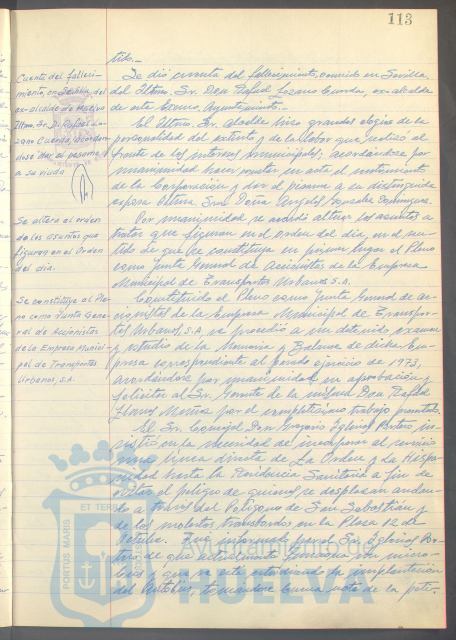 113
tido.-
Cuenta del falleci-
miento, en Sevilla, del
ex-alcalde de Huelva
Iltmo. Sr. D. Rafael Lo-
zano Cuerda, acordán-
dose dar el pésame
a su viuda
Se dió cuenta del fallecimiento, ocurrido en Sevilla,
del Iltmo. Sr. Don Rafael Lozano Cuerda, ex-alcalde
de este Excmo. Ayuntamiento.-
El Iltmo. Sr. Alcalde hizo grandes elogios de la
personalidad del extinto y de la labor que realizó al
frente de los intereses municipales, acordándose por
unanimidad hacer constar en acta el sentimiento
de la Corporación y dar el pésame a su distinguida
esposa Iltma. Sra. Doña Angeles González Domínguez.
Se altera el orden
de los asuntos que
figuran en el Orden
del día.
Por unanimidad se acordó alterar los asuntos a
tratar que figuran en el orden del día, en el sen-
tido de que se constituya en primer lugar el Pleno
como Junta General de Accionistas de la Empresa
Municipal de Transportes Urbanos S.A.
Se constituye el Ple-
no como Junta Gene-
ral de Accionistas
de la Empresa Munici-
pal de Transportes
Urbanos, S.A.
Constituído el Pleno como Junta General de ac-
cionistas de la Empresa Municipal de Transpor-
tes Urbanos, S.A. se procedió a un detenido examen
y estudio de la Memoria y Balance de dicha Em-
presa correspondiente al pasado ejercicio de 1973,
acordándose por unanimidad su aprobación y
felicitar al Sr. Gerente de la misma Don Rafael
por el completísimo trabajo prestado.
El Sr. Concejal Don Gregorio Iglesias in-
sistió en la necesidad de incorporar al servicio
una línea directa de La Orden y La Hispa-
nidad hasta la Residencia Sanitaria a fin de
evitar el peligro de quienes se desplazan andan-
do a través del Polígono de San Sebastián y
de los molestos transbordos en la Plaza 12 de
Octubre. Fue informado por el Sr. Iglesias
de que actualmente funciona un micro-
bus y que se está estudiando la implantación
del Autobús, tomándose buena nota de la peti-
PORTUS MARIS
ET TERRE
Ayuntamiento de
HUELVA